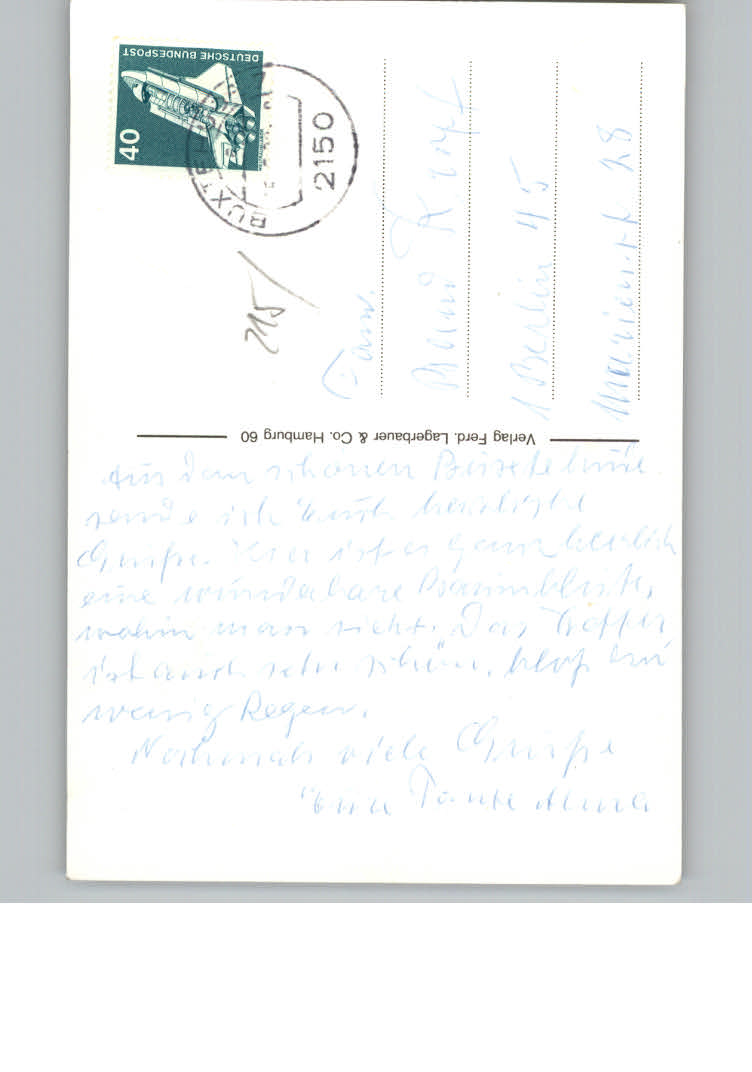 DEUTSCHE BUNDESPOST
40
BUXTEHUDE
2150
215
Fam.
1 Berlin 45
28
Verlag Ferd. Lagerbauer & Co. Hamburg 60
Aus dem schönen Buxtehude
sende ich Euch herzliche
Grüße. Hier ist es ganz herrlich
eine wunderbare Baumblüte,
wohin man sieht. Das
ist auch sehr schön, bloß zu
wenig Regen.
Nochmals viele Grüße
Eure Tante